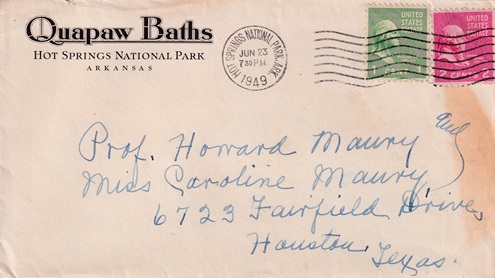 Quapaw Baths
HOT SPRINGS NATIONAL PARK
ARKANSAS
HOT SPRINGS NATIONAL PARK, ARK.
JUN 23
7 30 PM
1949
UNITED STATES
1 CENT 1
UNITED STATES
2 CENTS 2
Prof. Howard Maury and
Miss Caroline Maury
6723 Fairfield Drive
Houston, Texas.